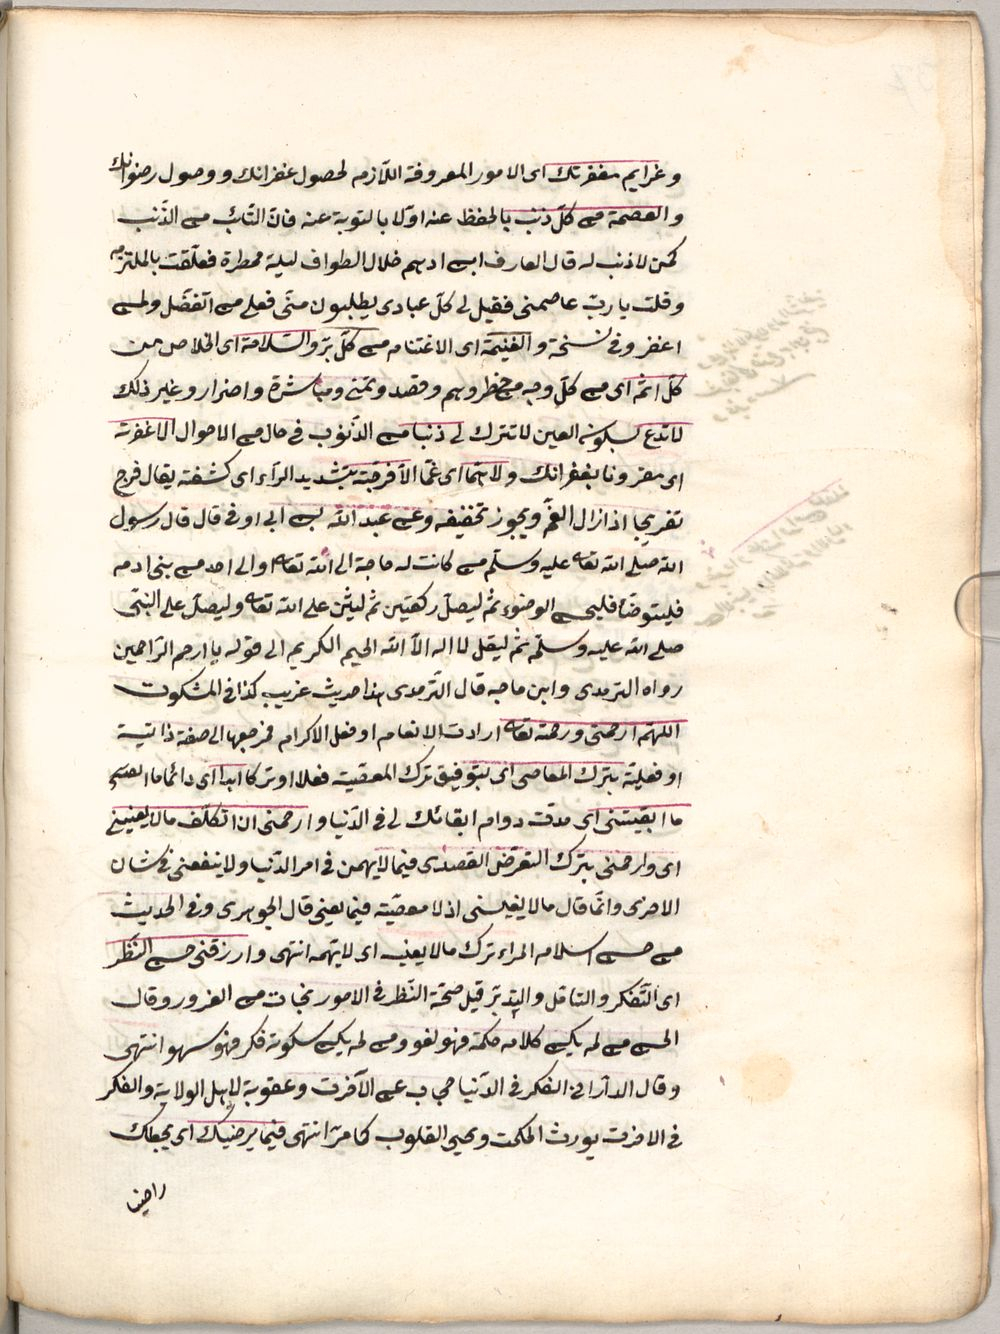 وعزايم مغفرتك اى الامور المعروفة اللازمه لحصول غفرانك ووصول رضوانك
والعصمة من كلّ ذنب بالحفظ عنه اوّلا بالتوبة عنه فانّ التّائب من الذّنب
كمن لا ذنب له قال العارف ابن ادهم خلال الطواف ليلة ممطرة فعلّقت بالملتزم
وقلت يا ربّ عاصمنى فقيل لى كلّ عبادى يطلبون منّى فعلى من اتفضّل ولمن
اغفر وفى نسخة والغنيمة اى الاغتنام من كلّ برّ والسّلامة اى الخلاص من
كلّ اثم اى من كلّ وجه من خطر وهم وقصد وتمنّى ومباشرة واصرار وغير ذلك
لا تدع بسكون العين لا تترك لى ذنبا من الذّنوب فى حال من الاحوال الا غفرته
اى مقرونا بغفرانك ولا همّا اى غمّا الاّ فرّجته بتشديد الرّاء اى كشفته يقال فرج
تفريجا اذا زال الغمّ ويجوز تخفيفه وعن عبد الله بن ابى اوفى قال قال رسول
الله صلى الله تعالى عليه وسلّم من كانت له حاجة الى الله تعالى والى احد من بنى ادم
فليتوضّأ فليحسن الوضوء ثمّ ليصلّ ركعتين ثم ليثن على الله تعالى وليصلّ على النبىّ
صلى الله عليه وسلّم ثم ليقل لا اله الاّ الله الحليم الكريم الى قوله يا ارحم الرّاحمين
رواه الترمذى وابن ماجه قال التّرمذى هذا حديث غريب كذا فى المشكوة
اللهمّ ارحمنى ورحمة تعالى ارادة الانعام او فعل الاكرام فمرجعها الى صفة ذاتية
او فعليّة بترك المعاصى اى بتوفيق ترك المعصية فعلا او تركا ابدا اى دائما ما
ما ابقيتنى اى مدّة دوام ابقائك لى فى الدّنيا وارحمنى ان اتكلّف مالا يعنينى
اى وارحمنى بترك التعرّض القصدى فيما لا يهمن فى امر الدّنيا ولا ينفعنى فى شان
الاخرى وانّما قال مالا يعنينى اذ لا معصية فيما يعنى قال الجوهرى وفى الحديث
من حسن اسلام المراء ترك مالا يعنيه اى لا يهمّه انتهى وارزقنى حسن النّظر
اى التّفكر والتامّل والتدبّر قيل صحّة النّظر فى الامور نجاة من الغرور وقال
الحسن من لم يكن كلامه حكمة فهو لغو ومن لم يكن سكوته فكر فهو سهو انتهى
وقال الدّارانى الفكر فى الدّنيا حجاب عن الآخرة وعقوبة لاهل الولاية والفكر
فى الاخرة يورث الحكمة ويحيى القلوب كما مرّ انتهى فيما يرضيك اى يجعلك
راضيا